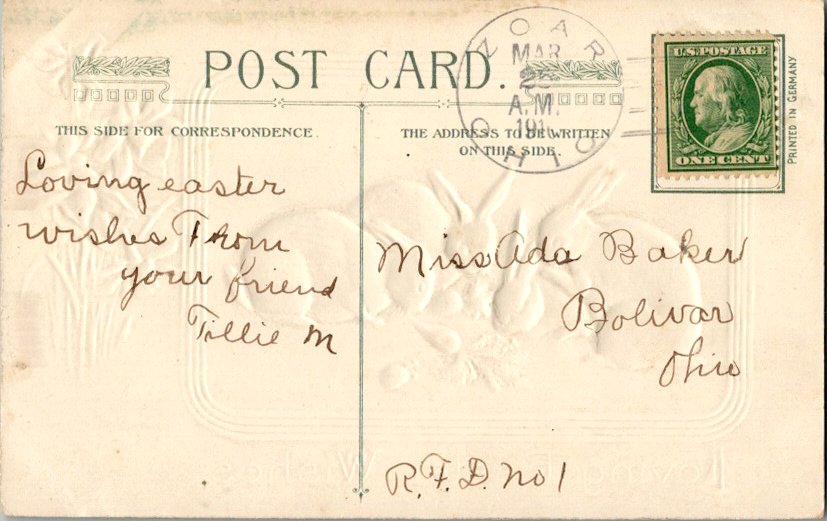 POST CARD.
THIS SIDE FOR CORRESPONDENCE.
THE ADDRESS TO BE WRITTEN
ON THIS SIDE.
ZOAR
MAR
A.M.
191
OHIO
U.S. POSTAGE
ONE CENT
PRINTED IN GERMANY
Loving easter
wishes From
your friend
Tillie M
Miss Ada Baker
Bolivar
Ohio
R.F.D. No 1